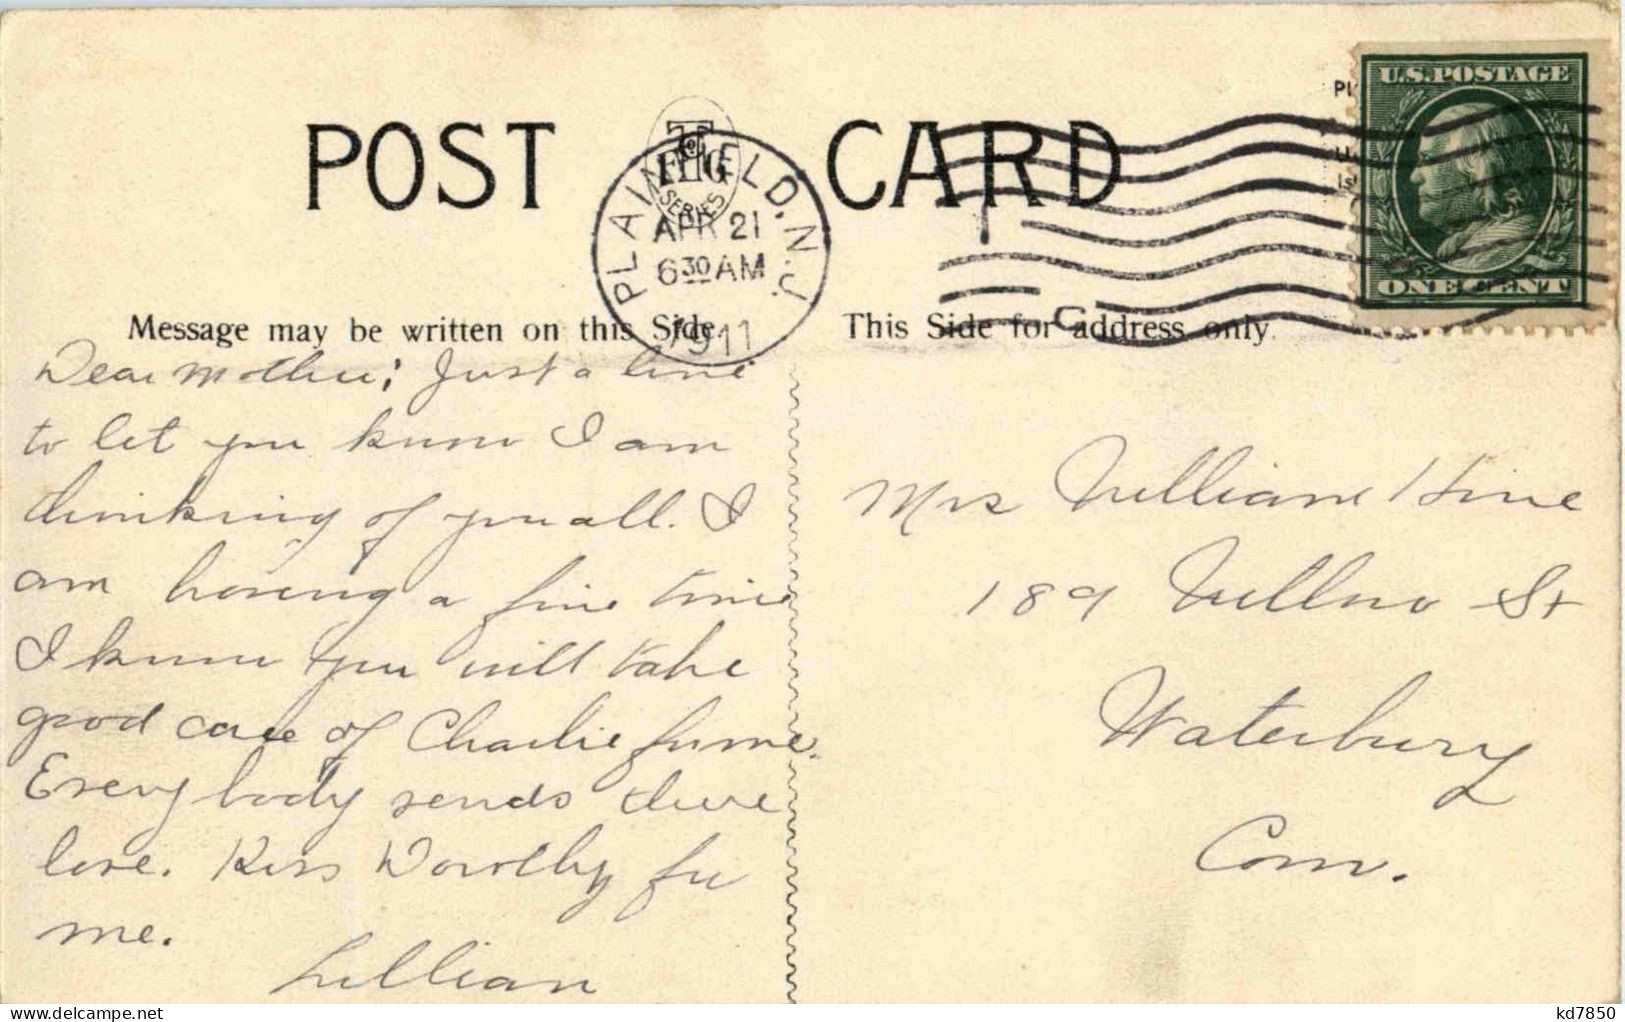 POST CARD
SERIES
PLAINFIELD. N.J.
APR 21
6 30 AM
1911
U.S. POSTAGE
ONE CENT
Message may be written on this Side.
This Side for address only.
Dear Mother; Just a line
to let you know I am
thinking of you all. I
am having a fine time
I know you will take
good care of Charlie for me.
Every body sends there
love. Kiss Dorothy for
me.
Lillian
Mrs William Hine
189 Willow St
Waterbury
Conn.
C
kd7850